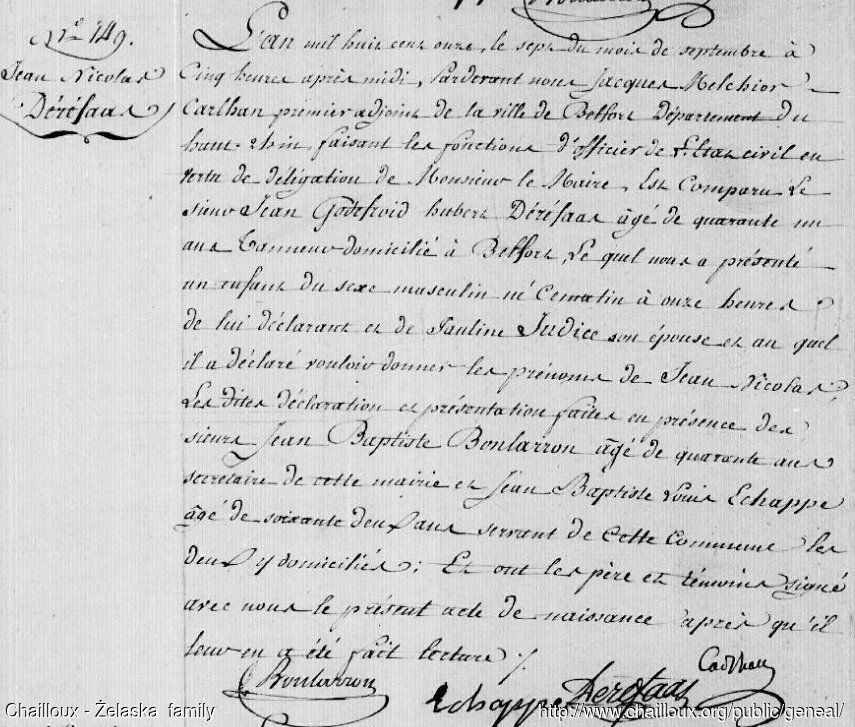 N.º 149.
Jean Nicolas
Déréfaas
L'an mil huit cent onze, le sept du mois de septembre à
Cinq heures après midi, Pardevant nous Jacques Melchior
Carlhan premier adjoint de la ville de Belfort Département du
haut-rhin, faisant les fonctions d'officier de l'Etat civil en
vertu de délégation de Monsieur le Maire, Est Comparu Le
sieur Jean Godefroid hubert Déréfaas âgé de quarante un
ans Tanneur domicilié à Belfort, Le quel nous a présenté
un enfant du sexe masculin né Cematin à onze heures
de lui déclarant et de Pauline Judice son épouse et au quel
il a déclaré vouloir donner les prénoms de Jean Nicolas,
Les dites déclaration et présentation faites en présence des
sieurs Jean Baptiste Bonlarron âgé de quarante ans
secretaire de cette mairie et Jean Baptiste Louis Echappe
âgé de soixante deux ans servant de Cette Commune les
deux y domiciliés; Et ont les père et témoins signé
avec nous le présent acte de naissance après qu'il
leur en a été fait lecture ./.
Bonlarron
Echappe
Derefaas
Carlhan
Chailloux - Želaska family
http://www.chailloux.org/public/geneal/